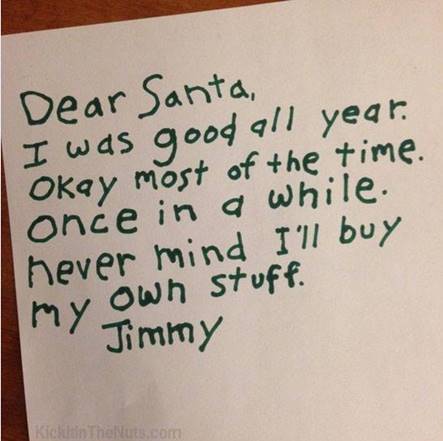 Dear Santa,
I was good all year.
Okay most of the time.
Once in a while.
never mind I'll buy
my own stuff.
Jimmy
KickItInTheNuts.com